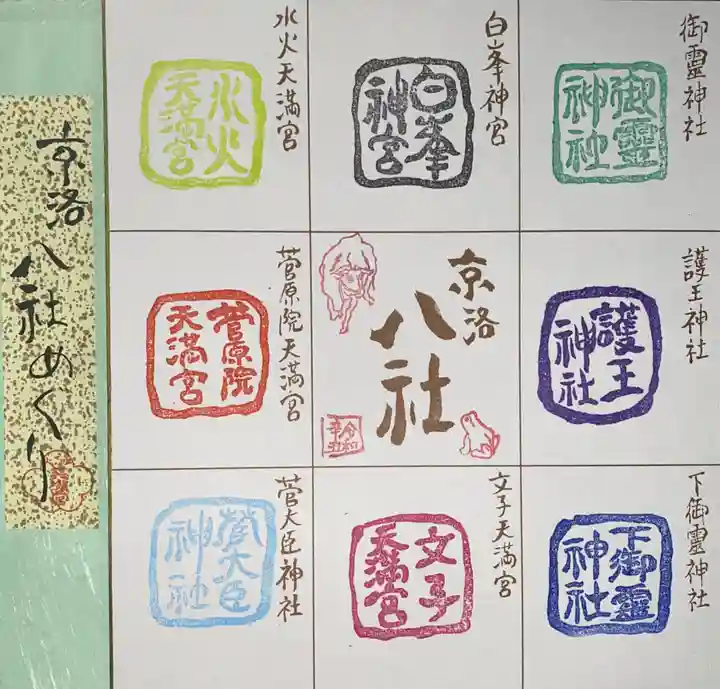 京洛八社めぐり
水火天満宮
水火
天満宮
白峯神宮
白峯
神宮
御靈神社
御靈
神社
菅原院天満宮
菅原院
天満宮
京洛
八社
令和
辛丑
護王神社
護王
神社
菅大臣神社
菅大臣
神社
文子天満宮
文子
天満宮
下御靈神社
下御靈
神社